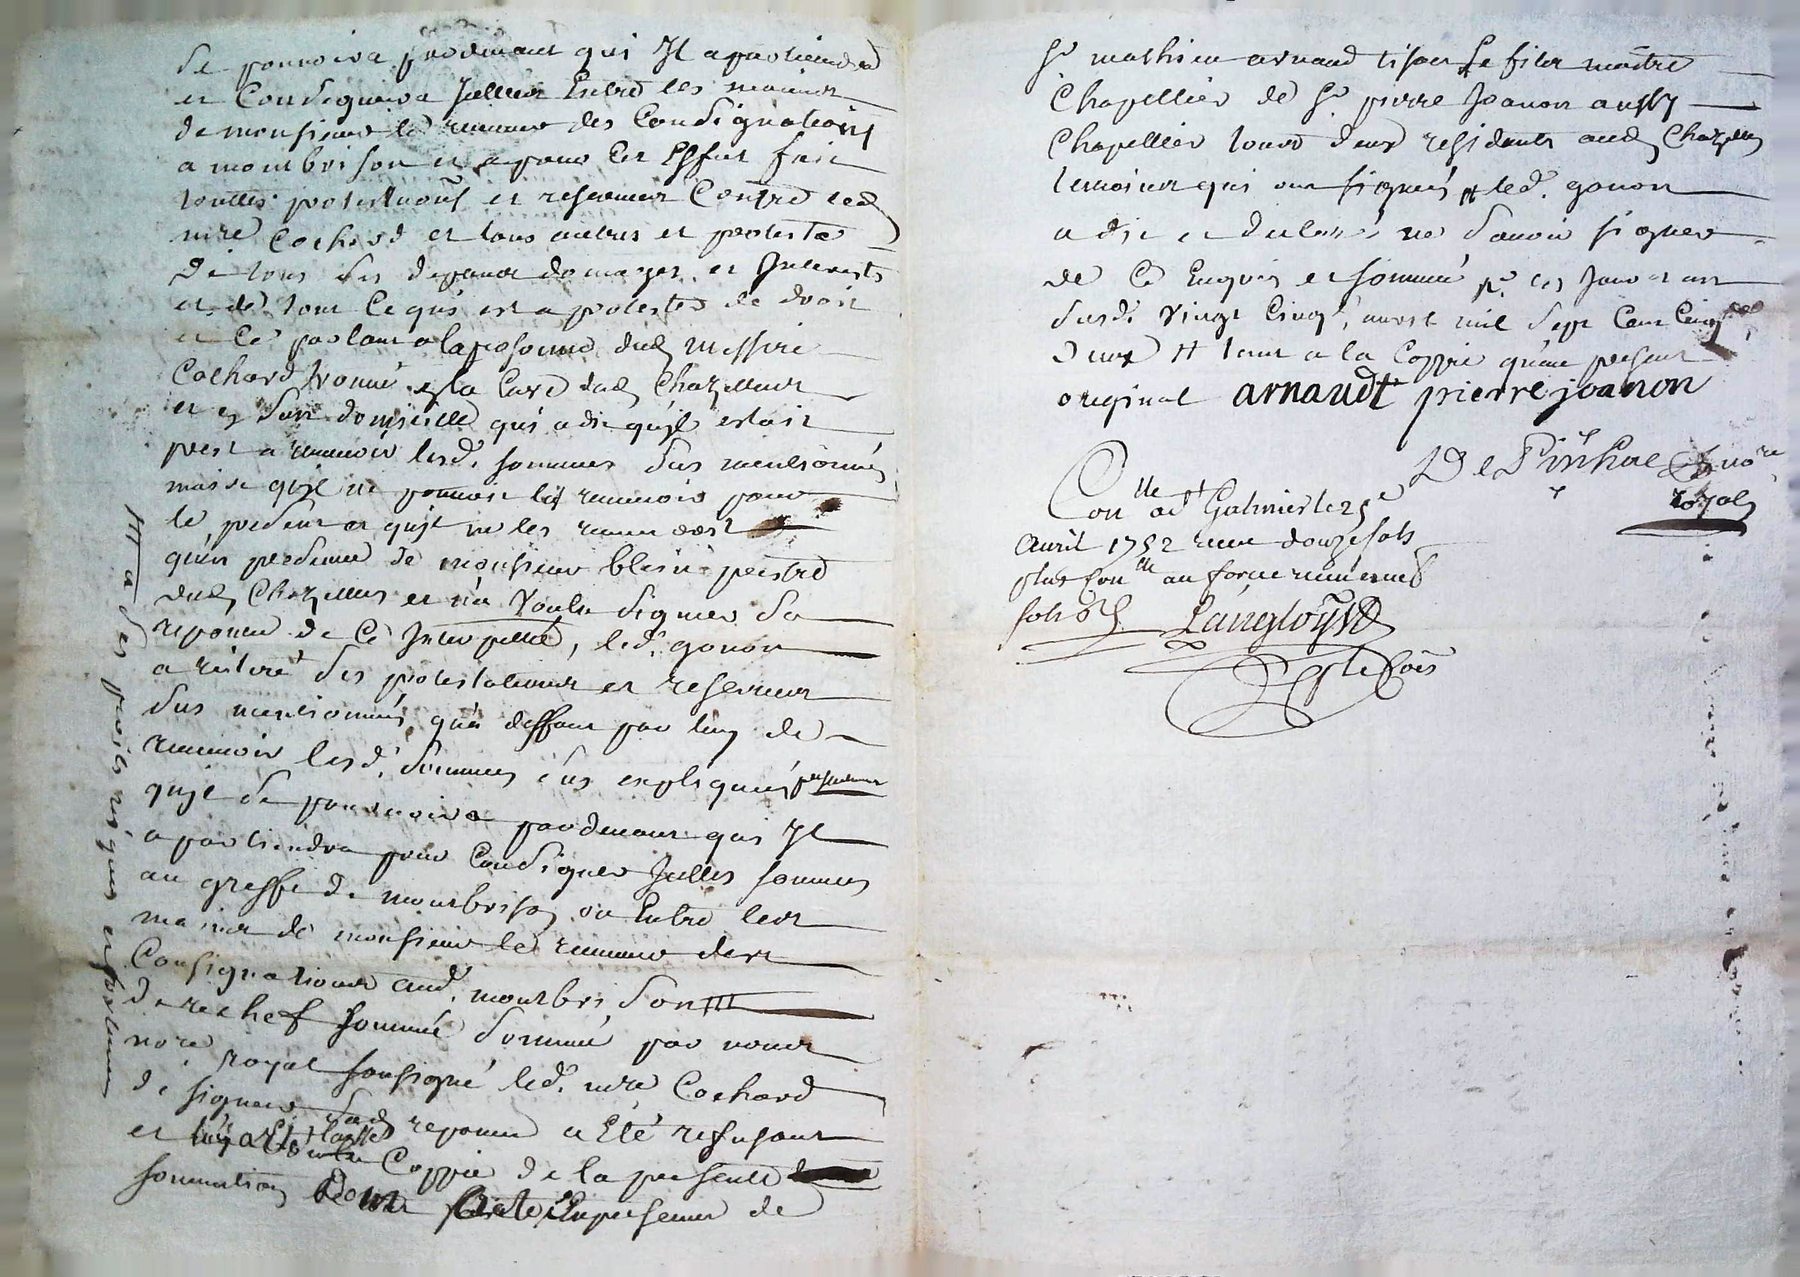 se pourvoira pardevant qui Jl apartiendra
et Consignera Jcelles Entre les mains
de monsieur le receveur des Consignations
a montbrison et a pour cet Effet fait
touttes protestations et reserves Contre led
mre Cochard et tous autres et proteste
de tous ses depens domages et Jnterests
et de tout ce qui est a protester de droit
et ce parlant a la personne dud messire
Cochard trouvé a la Cure dud Chazelles
et en son domicille qui a dit quil estoit
prest a recevoir lesd. sommes sus mentionnés
mais quil ne pouvoit les recevoir pour
le present et quil ne les recevroit
quen presence de monsieur blein pretre
dud Chazelles et na Voulu signer sa
reponse de ce Jnterpellé, led. gonon
a reiteré ses protestations et reserves
sus mentionnés qua deffaut par luy de
recevoir lesd. sommes sus expliquées presentement
quil se pourvoira pardevant qui Jl
apartiendra pour Consigner Jcelles sommes
au greffe de montbrison ou Entre les
mains de monsieur le receveur des
Consignations aud. montbrison
derechef sommé sommé par nous
nore royal soussigné led. mre Cochard
de signer sad reponse a Eté refusant
et Coppie de la presente
sommation Dont Acte En presence de
# a ses perils risques et fortunes
Sr mathieu arnaud tisseur Le fils maitre
Chapellier de Sr. pierre Joanon aussy
Chapellier tous deux residents aud Chazelles
temoins qui ont signés # led. gonon
a dit et declaré ne savoir signer
de ce Enquis et sommé ces Jour et an
susd. Vingt Cinq avril mil sept Cent Cinq
deux # tant a la Coppie quau present
original arnaudt pierre joanon
De Pinhac nore
royal
Conlle a St Galmier le 25e
Avril 1752 reçu douze sols
plus Conlle au
sols Langloys